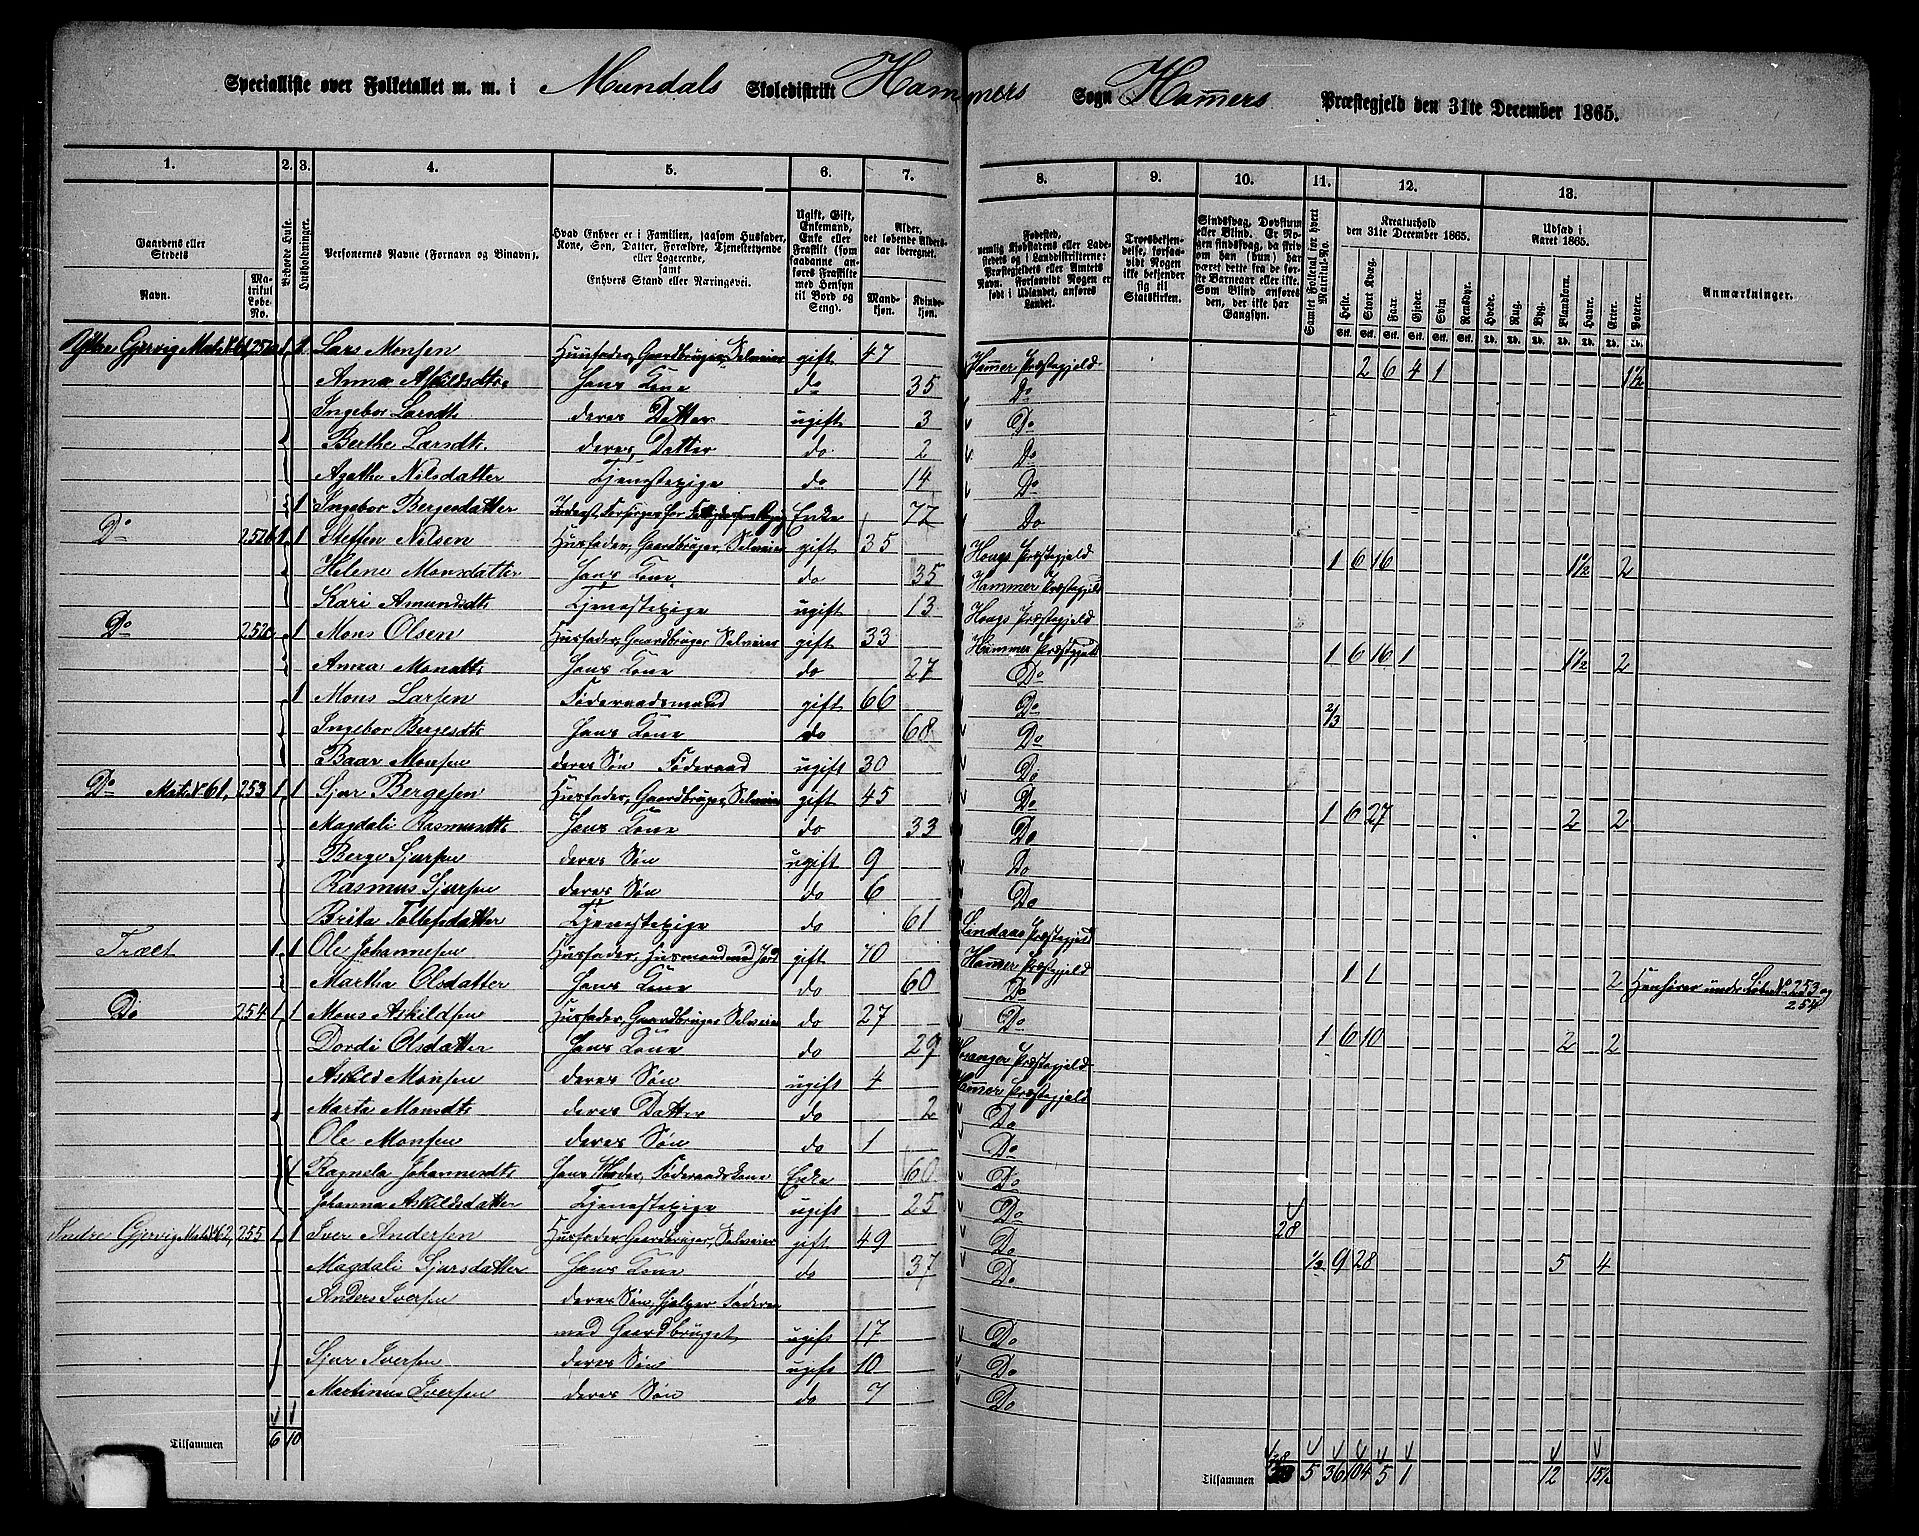 Specialliste over Folketallet m. m. i Mundals Skoledistrikt Hammers Sogn Hamers Præstegjeld den 31te December 1865.
1. 2. 3. 4. 5. 6. 7. 8. 9. 10. 11. 12. 13.
Gaardens eller Stedets Navn. Matrikul Løbe-No. Bebvede Huse. Husholdninger. Personernes Navne (Fornavn og Binavn). Hvad Enhver er i Familien, saasom Husfader, Kone, Søn, Datter, Forældre, Tjenestetyende eller Logerende, samt Enhvers Stand eller Næringsvei. Ugift, Gift, Enkemand, Enke eller Fraskilt (som saadanne anføres Fraskilte med Hensyn til Bord og Seng). Alder, det løbende Alders-aar iberegnet. Mandkjøn. Kvindekjøn. Fødested, nemlig Kjøbstædens eller Ladestedets og i Landdistrikterne: Præstegjeldets eller Amtets Navn. Forsaavidt Nogen er født i Udlandet, anføres Landet. Troesbekjendelse, forsaavidt Nogen ikke bekjender sig til Statskirken. Sindssvag, Døvstum eller Blind. Er Nogen sindssvag, da skriv om han (hun) har været dette fra de første Barneaar eller ikke. Som Blind anføres den, der ikke har Gangsyn. Samlet Folketal for hvert Matrikul-No. Kreaturhold den 31te December 1865. Heste. Stort Kvæg. Faar. Gjeder. Svin. Rensdyr. Udsæd i Aaret 1865. Hvede. Rug. Byg. Blandkorn. Havre. Erter. Poteter. Anmærkninger.
Ydtre Gjervig Mat. N 61, 252a 1 1 Lars Monsen Husfader, Gaardbruger, Selveier gift 47 Hamer Præstegjeld 2 6 4 1 1½
Anna Askildsdtr Hans Kone do 35 Do
Ingebor Larsdtr deres Datter ugift 3 Do
Berthe Larsdtr. deres Datter do. 2 Do
Agathe Nilsdatter Tjenestepige do 14 Do
1 Ingebor Bergesdatter Enke 72 Do
Do 252b 1 1 Steffen Nilsen Husfader, Gaardbruger, Selveier gift 35 Hougs Præstegjeld 1 6 16 1½ 2
Helene Monsdatter Hans Kone do 35 Hammer Præstegjeld
Kari Amundsdtr Tjenestepige ugift 13 Hougs Præstegjeld
Do 252c 1 Mons Olsen Husfader, Gaardbruger, Selveier gift 33 Hammer Præstegjeld 1 6 16 1 1½ 2
Anna Monsdtr Hans Kone do 27 Do
1 Mons Larsen Føderaadsmand gift 66 Do 2/3
Ingebor Bergesdtr Hans Kone do 68 Do
Baar Monsen deres Søn Føderaad ugift 30 Do
Do Mat. N 61, 253 1 1 Sjur Bergesen Husfader, Gaardbruger, Selveier gift 45 Do 1 6 27 2 2
Magdali Rasmusdtr Hans Kone do 33 Do
Berge Sjursen deres Søn ugift 9 Do
Rasmus Sjursen deres Søn do 6 Do
Brita Tollefsdatter Tjenestepige do 61 Lindaas Præstegjeld
Træet 1 1 Ole Johannesen Husfader, Husmand med Jord gift 70 Hamer Præstegjeld 1 1 2 Henhører under Løbe No 253 og 254
Martha Olsdatter Hans Kone do 60 Do
Do 254 1 1 Mons Askildsen Husfader, Gaardbruger, Selveier do 27 Do 1 6 10 2 2
Dordi Olsdatter Hans Kone do 29 Hosanger Præstegjeld
Askild Monsen deres Søn ugift 4 Hamer Præstegjeld
Marta Monsdtr deres Datter do 2 Do
Ole Monsen deres Søn do 1 Do
1 Ragnela Johannesdtr Hans Moder, Føderaadskone Enke 60 Do
Johanna Askildsdatter Tjenestepige ugift 25 Do
Indre Gjervig Mat. N 62, 255 1 1 Iver Andersen Husfader, Gaardbruger, Selveier gift 49 Do 28 1/3 9 28 5 4
Magdali Sjursdatter Hans Kone do 37 Do
Anders Iversen deres Søn, hjelper Faderen
med Gaardbruget ugift 17 Do
Sjur Iversen deres Søn ugift 10 Do
Martinus Iversen deres Søn do 7 Do
Tilsammen 6 10 Tilsammen 5 36 104 5 1 12 15½